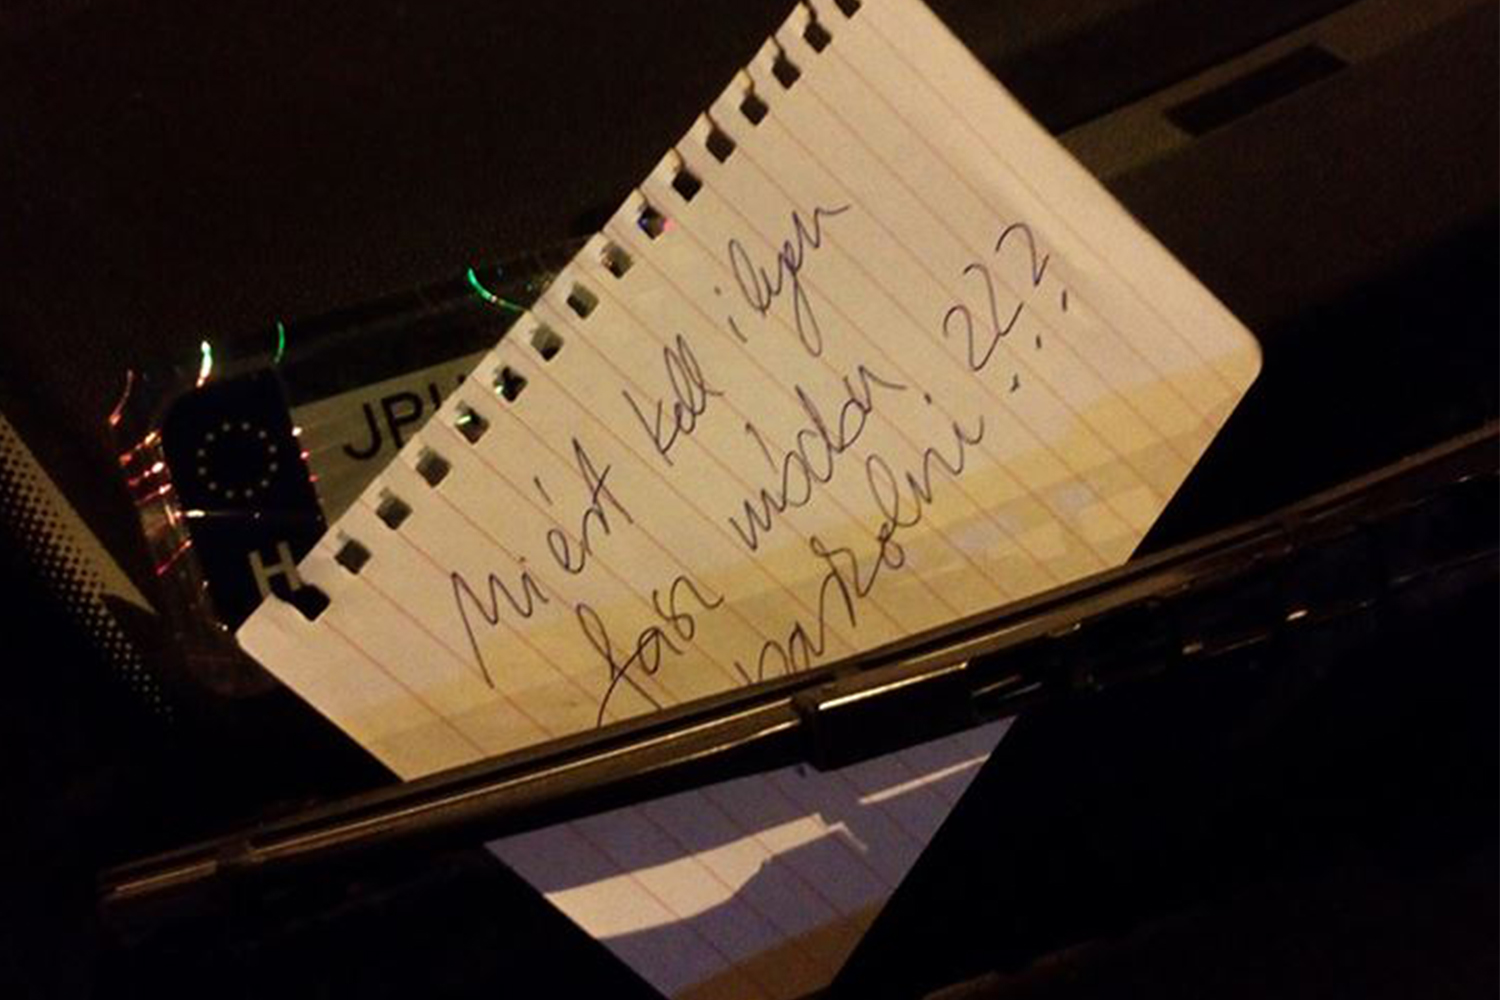 JPU
H
Miért kell ilyen
fasz módon
parkolni ???